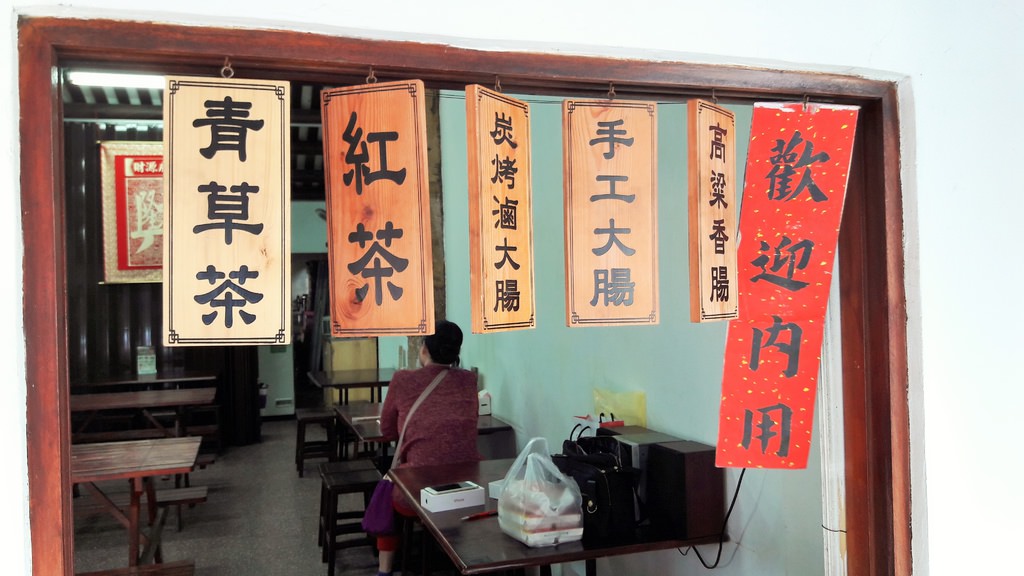 青草茶
紅茶
炭烤滷大腸
手工大腸
高粱香腸
歡迎內用
財源